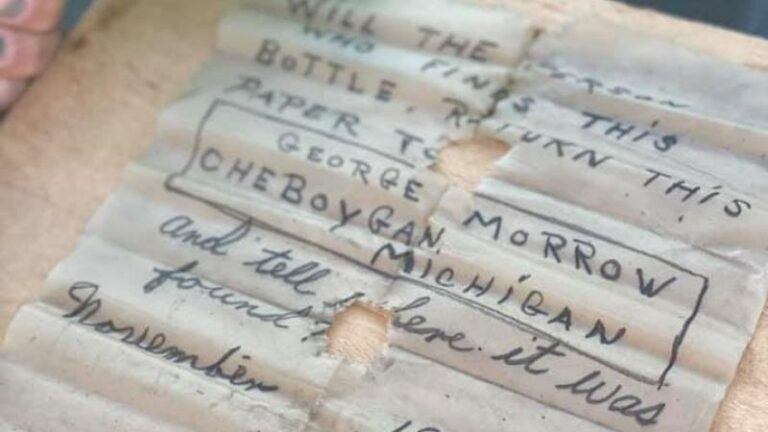 WILL THE PERSON
WHO FINDS THIS
BOTTLE, RETURN THIS
PAPER TO
GEORGE MORROW
CHEBOYGAN,
MICHIGAN
and tell where it was
found?
November